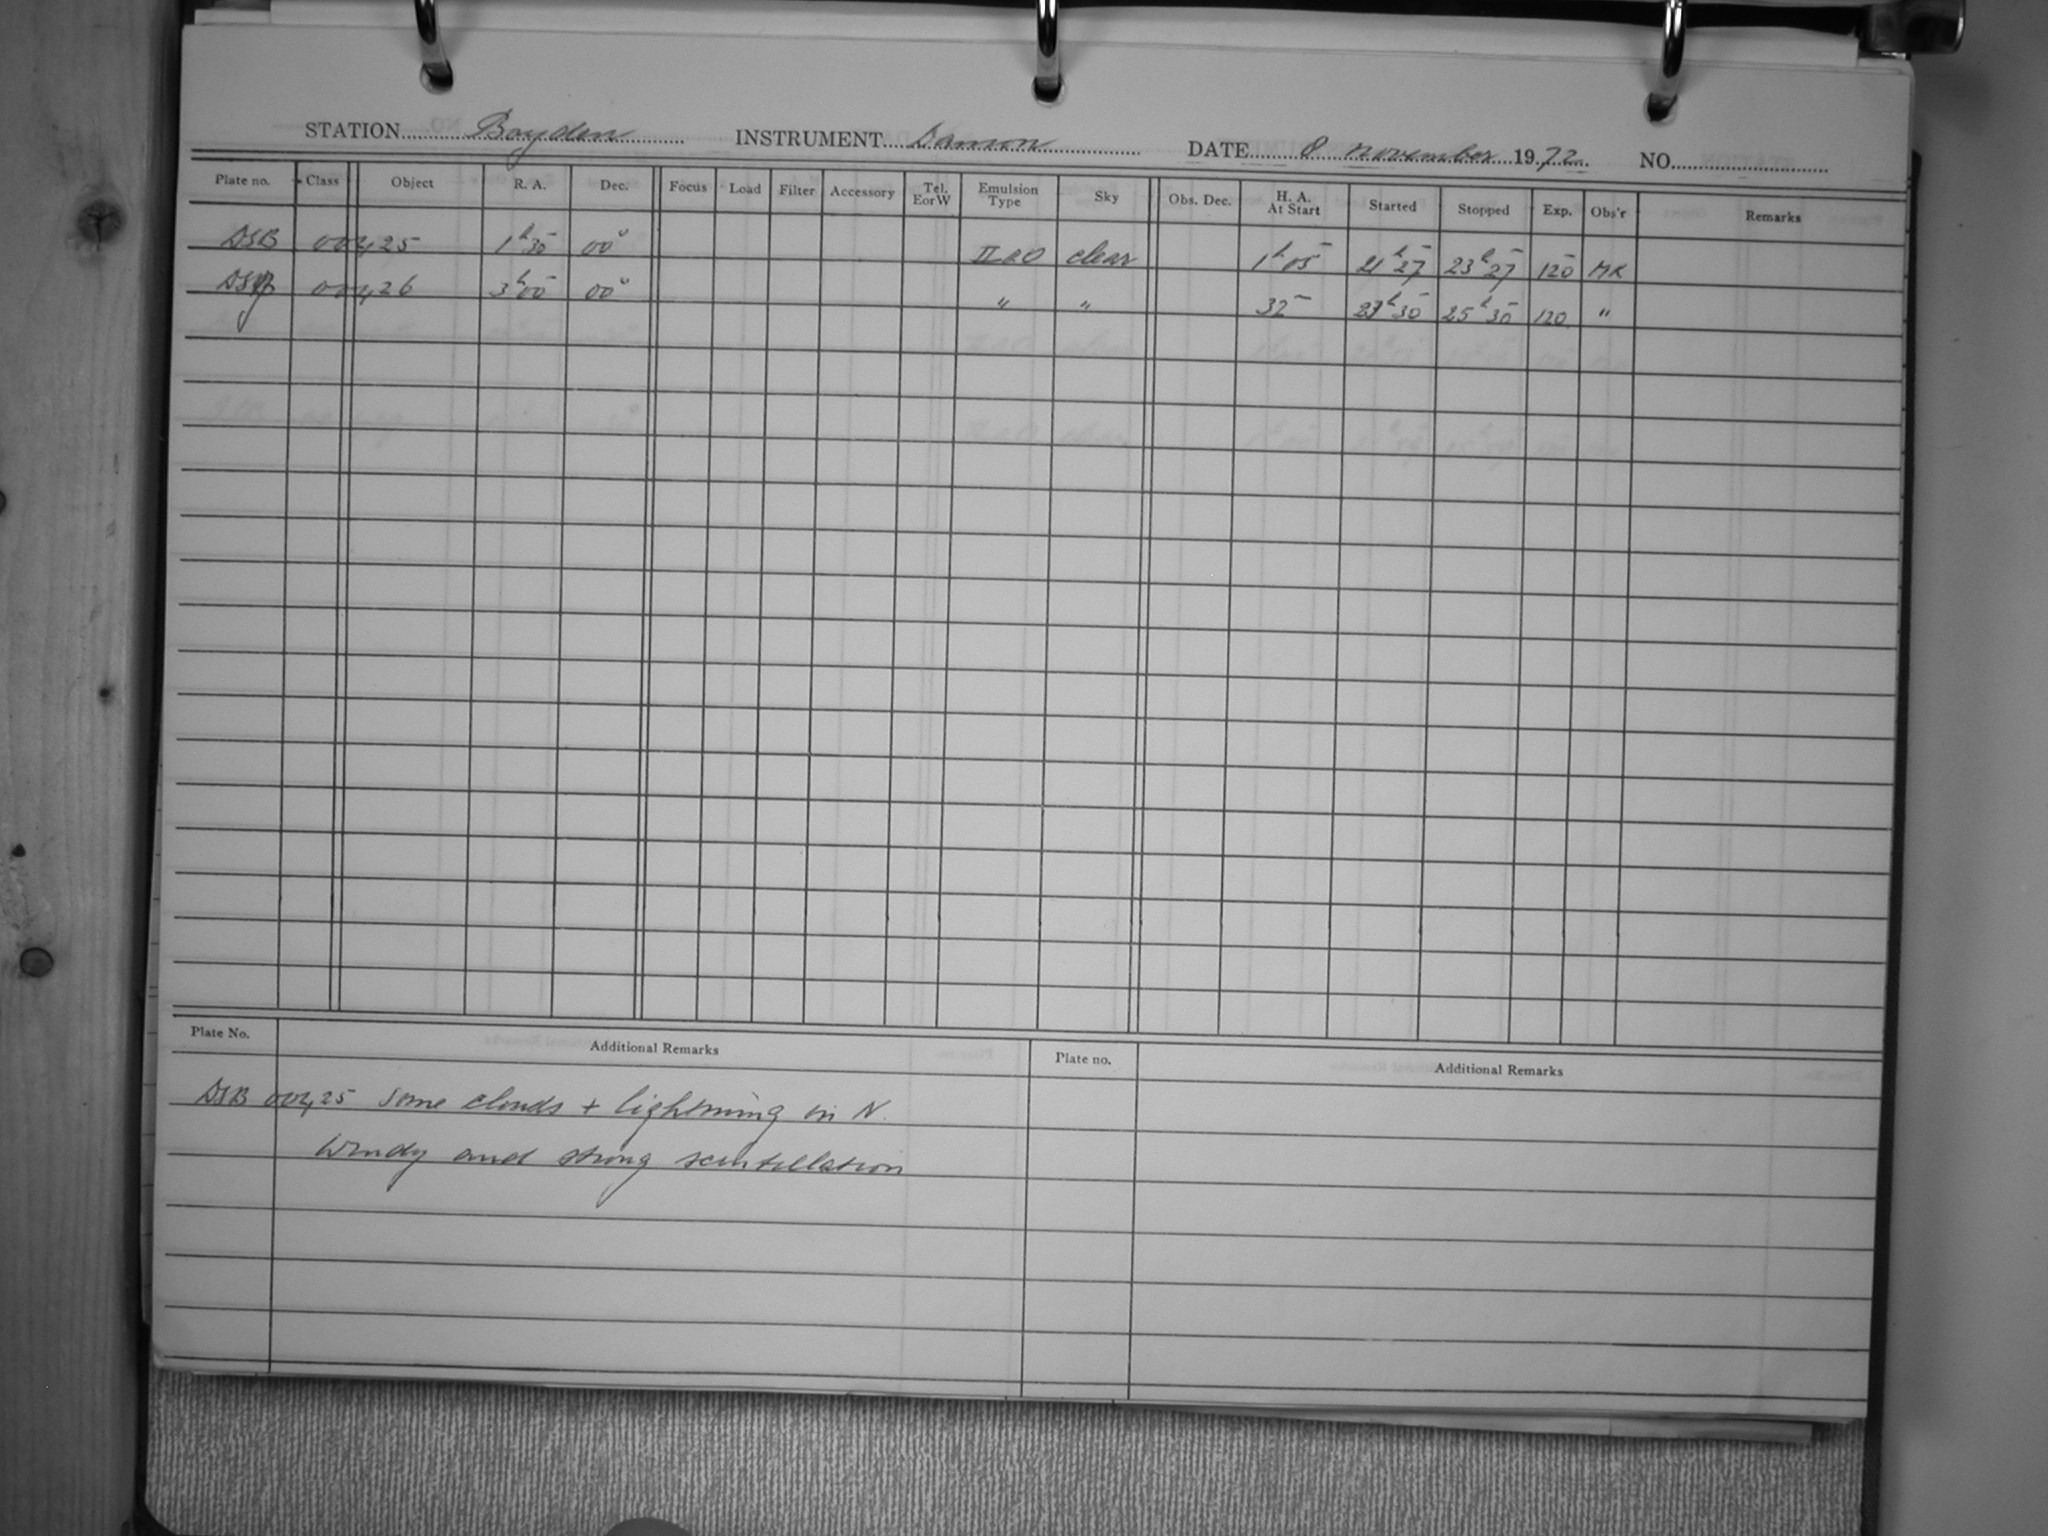 STATION Boyden INSTRUMENT Damon DATE 8 november 1972 NO.
Plate no. Class Object R. A. Dec. Focus Load Filter Accessory Tel. EorW Emulsion Type Sky Obs. Dec. H. A. At Start Started Stopped Exp. Obs'r Remarks
DSB 00425 1h30m 00° IIaO clear 1h05m 21h27m 23h27m 120m MK
DSB 00426 3h00m 00° " " 32m 23h30m 25h30m 120 "
Plate No. Additional Remarks Plate no. Additional Remarks
DSB 00425 some clouds + lightning in N.
Windy and strong scintillation